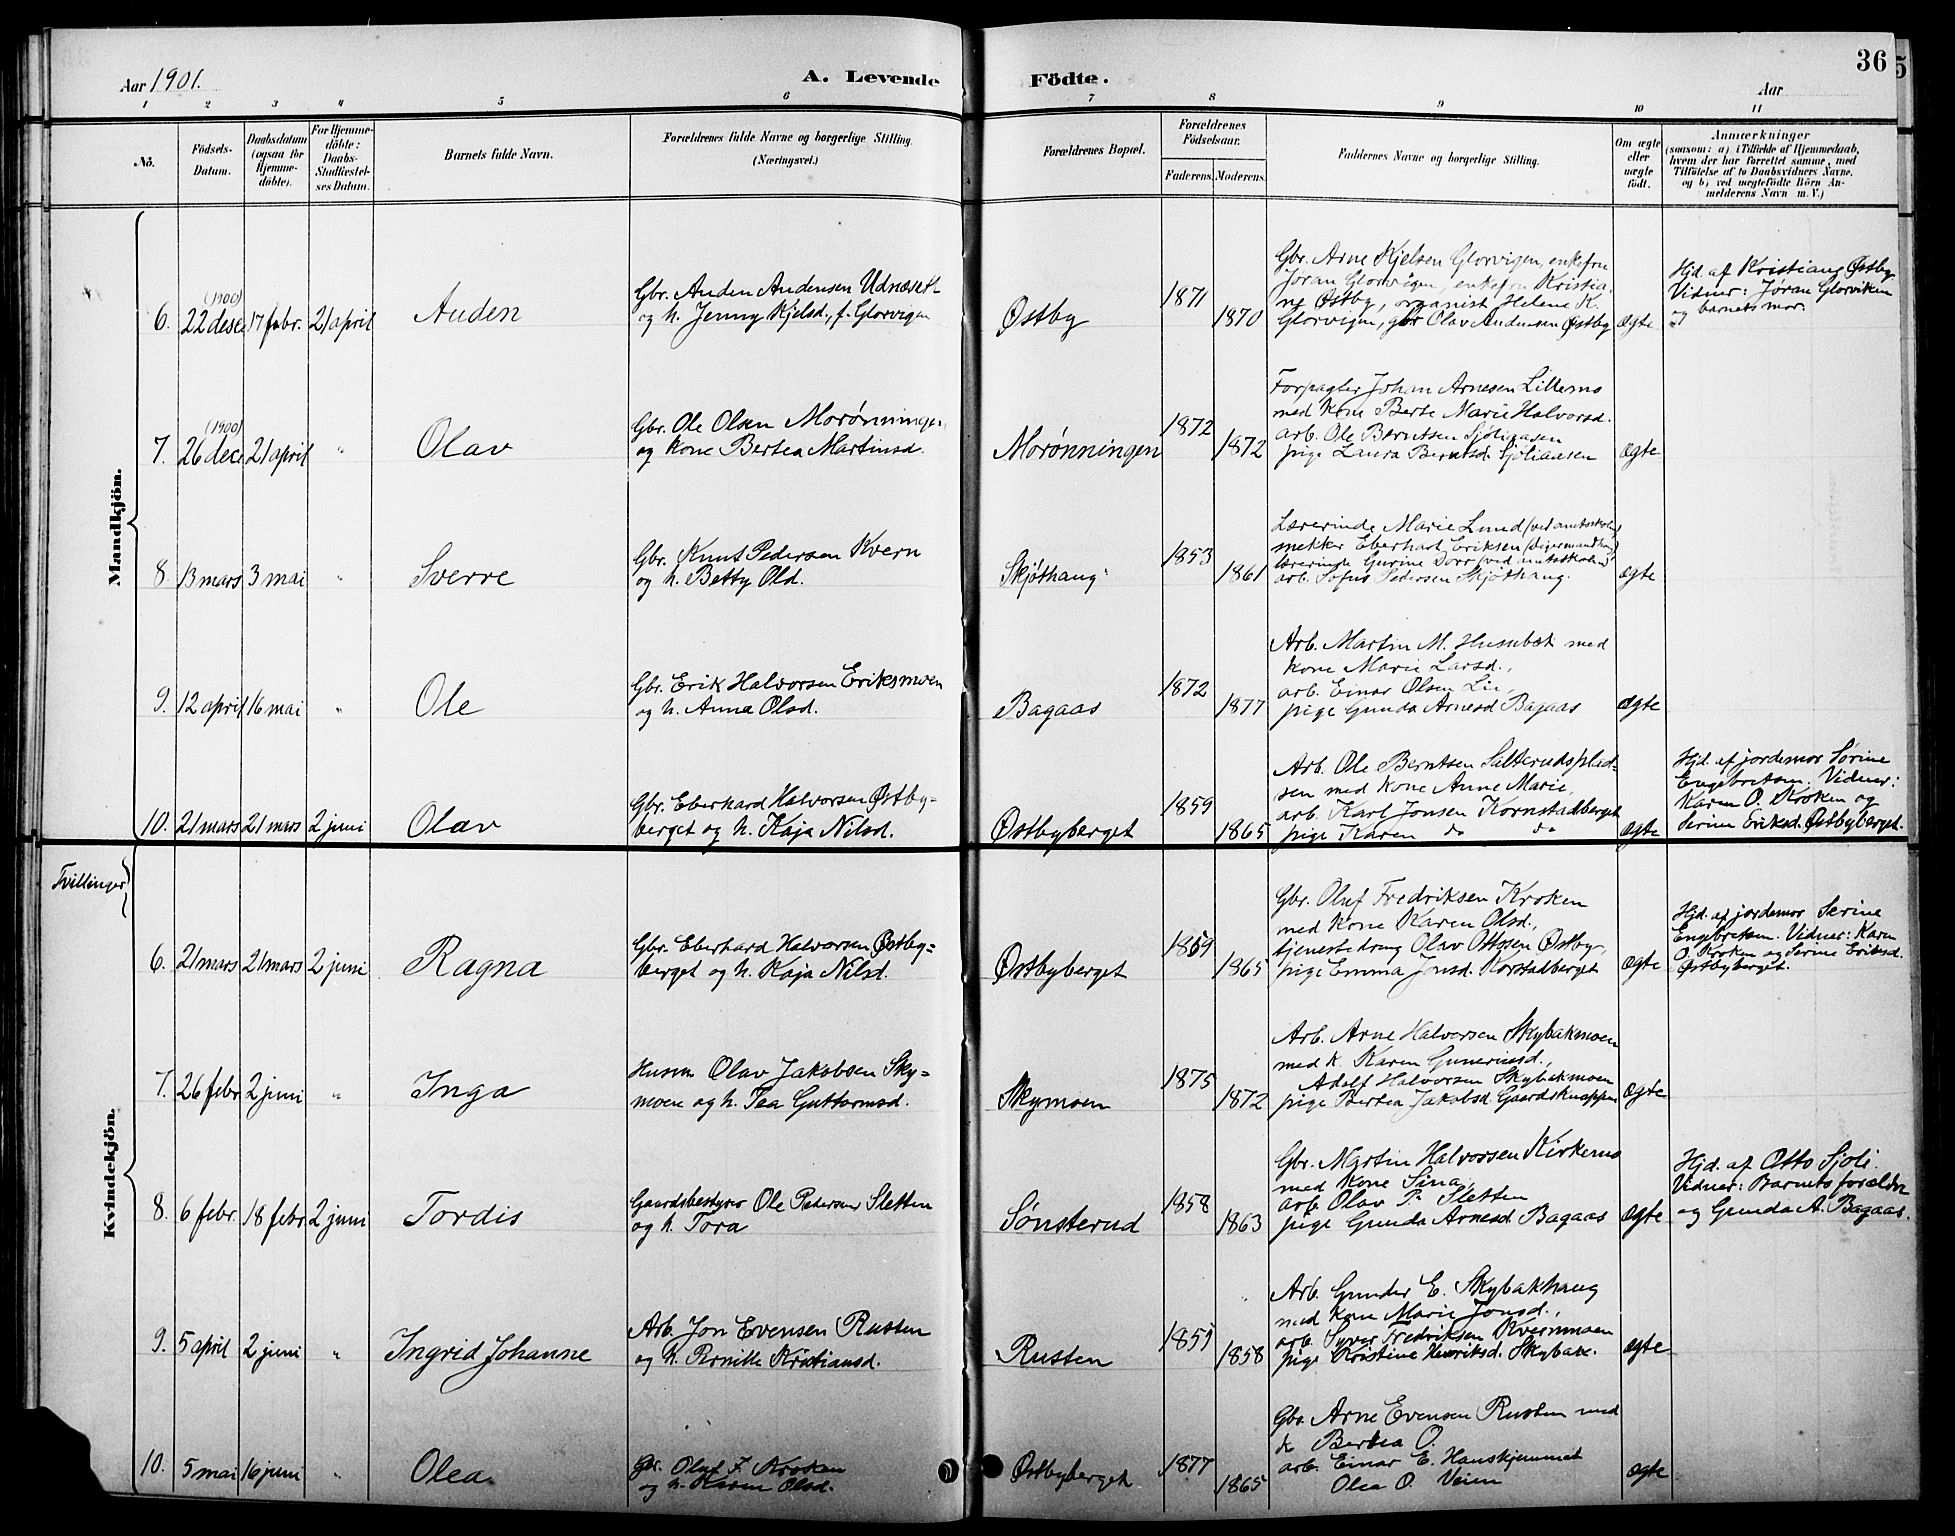 36
Aar 1901.
A. Levende Födte.
Aar
1 2 3 4 5 6 7 8 9 10 11
No.
Födsels-
Datum.
Daabsdatum
(ogsaa for
Hjemme-
döbte).
For Hjemme-
döbte:
Daabs-
Stadfæstel-
ses Datum.
Barnets fulde Navn.
Forældrenes fulde Navne og borgerlige Stilling.
(Næringsvei.)
Forældrenes Bopæl.
Forældrenes
Födselsaar.
Faderens. Moderens.
Faddernes Navne og borgerlige Stilling.
Om ægte
eller
uægte
født.
Anmærkninger
(saasom: a) i Tilfælde af Hjemmedaab,
hvem der har forrettet samme, med
Tilføielse af to Daabsvidners Navne,
og b) ved uægtefödte Börn An-
melderens Navn m. V.)
Mandkjön.
6. (1900) 22 desc 17 febr. 21 april
Auden
Gbr. Auden Andensen Udnæset
og h. Jenny Kjelsd., f. Glorvigen
Østby
1871
1870
Gbr. Arne Kjelsen Glorvigen, enkefru
Jøran Glorvigen, enkefru Kristia-
ne Østby, organist Helene K.
Glorvigen, gbr Olav Andensen Østby
ægte
Hjd. af Kristiane Østby
Vidner: Jøran Glorviken
og barnets mor.
7. (1900) 26 dec 21 april "
Olav
Gbr. Ole Olsen Morønningen
og kone Bertea Martinsd.
Morønningen
1872
1872
Forpagter Johan Arnesen Lillemo
med kone Berte Marie Halvorsd.
arb. Ole Berntsen Sjøliaasen
pige Laura Berntsd. Sjøliaasen
ægte
8 13 mars 3 mai "
Sverre
Gbr. Knut Pedersen Kvern
og h. Betty Old.
Skjøthaug
1853
1861
Lærerinde Marie Lund (ved amtsskolen)
snekker Eberhart Eriksen
lærerinde Gurine Dorr (ved amtsskolen)
arb. Sofus Pedersen Skjøthaug.
ægte
9. 12 april 16 mai "
Ole
Gbr. Erik Halvorsen Eriksmoen
og h. Anna Olsd.
Bagaas
1872
1877
Arb. Martin M. Husubæk med
kone Marie Larsd.,
arb. Einar Olsen Lie,
pige Gunda Arnesd Bagaas
ægte
10. 21 mars 21 mars 2 juni
Olav
Gbr. Eberhard Halvorsen Østby-
berget og h. Kaja Nilsd.
Østbyberget
1859
1865
Arb. Ole Berntsen Sætterudsplad-
sen med kone Anne Marie,
arb. Karl Jonsen Kornstadberget
pige Karen do do
ægte
Hjd. af jordemor Sørine
Engebretsen. Vidner:
Karen O. Kroken og
Serine Eriksd. Østbyberget.
Tvillinger
Kvindekjön.
6. 21 mars 21 mars 2 juni
Ragna
Gbr. Eberhard Halvorsen Østby-
berget og h. Kaja Nilsd.
Østbyberget
1859
1865
Gbr. Oluf Fredriksen Kroken
med kone Karen Olsd.,
tjenestedreng Olav Ottosen Østby,
pige Emma Jonsd. Korstadberget
ægte
Hjd. af jordemor Serine
Engebretsen. Vidner: Karen
O. Kroken og Serine Eriksd.
Østbyberget.
7. 26 febr 2 juni "
Inga
Husm Olav Jakobsen Sky-
moen og h. Tea Guttormsd.
Skymoen
1875
1872
Arb. Arne Halvorsen Skybakmoen
med k. Karen Guneriusd.,
Adolf Halvorsen Skybakmoen
pige Bertea Jakobsd. Gaardsknappen
ægte
8. 6 febr. 18 febr 2 juni
Tordis
Gaardsbestyrer Ole Pedersen Sletten
og h. Tora
Sønsterud
1858
1863
Gbr. Martin Halvorsen Kirkemo
med kone Sina,
arb. Olav P. Sletten
pige Gunda Arnesd Bagaas
ægte
Hjd. af Otto Sjøli.
Vidner: Barnets forældre
og Gunda A. Bagaas.
9. 5 april 2 juni "
Ingrid Johanne
Arb. Jon Evensen Rusten
og h. Pernille Kristiansd.
Rusten
1855
1858
Arb. Gunder E. Skybakhaug
med kone Marie Jonsd.,
arb. Syver Fredriksen Kvernmoen
pige Kristine Henriksd. Skybak.
ægte
10. 5 mai 16 juni "
Olea
Gbr. Oluf F. Kroken
og h. Karen Olsd.
Østbyberget
1877
1865
Gbr Arne Evensen Rusten med
k Bertea O.
arb. Einar E. Hanskjemmet
Olea O. Veien
ægte